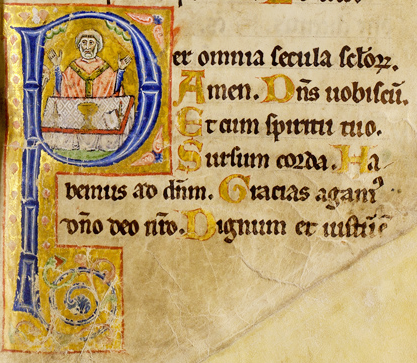 Per omnia secula sclorꝝ.
Amen. Dn̄s uobiscū.
Et cum spiritu tuo.
Sursum corda. Ha
bemus ad dn̄m. Gracias agamꝰ
dn̄o deo nr̄o. Dignum et iustū e